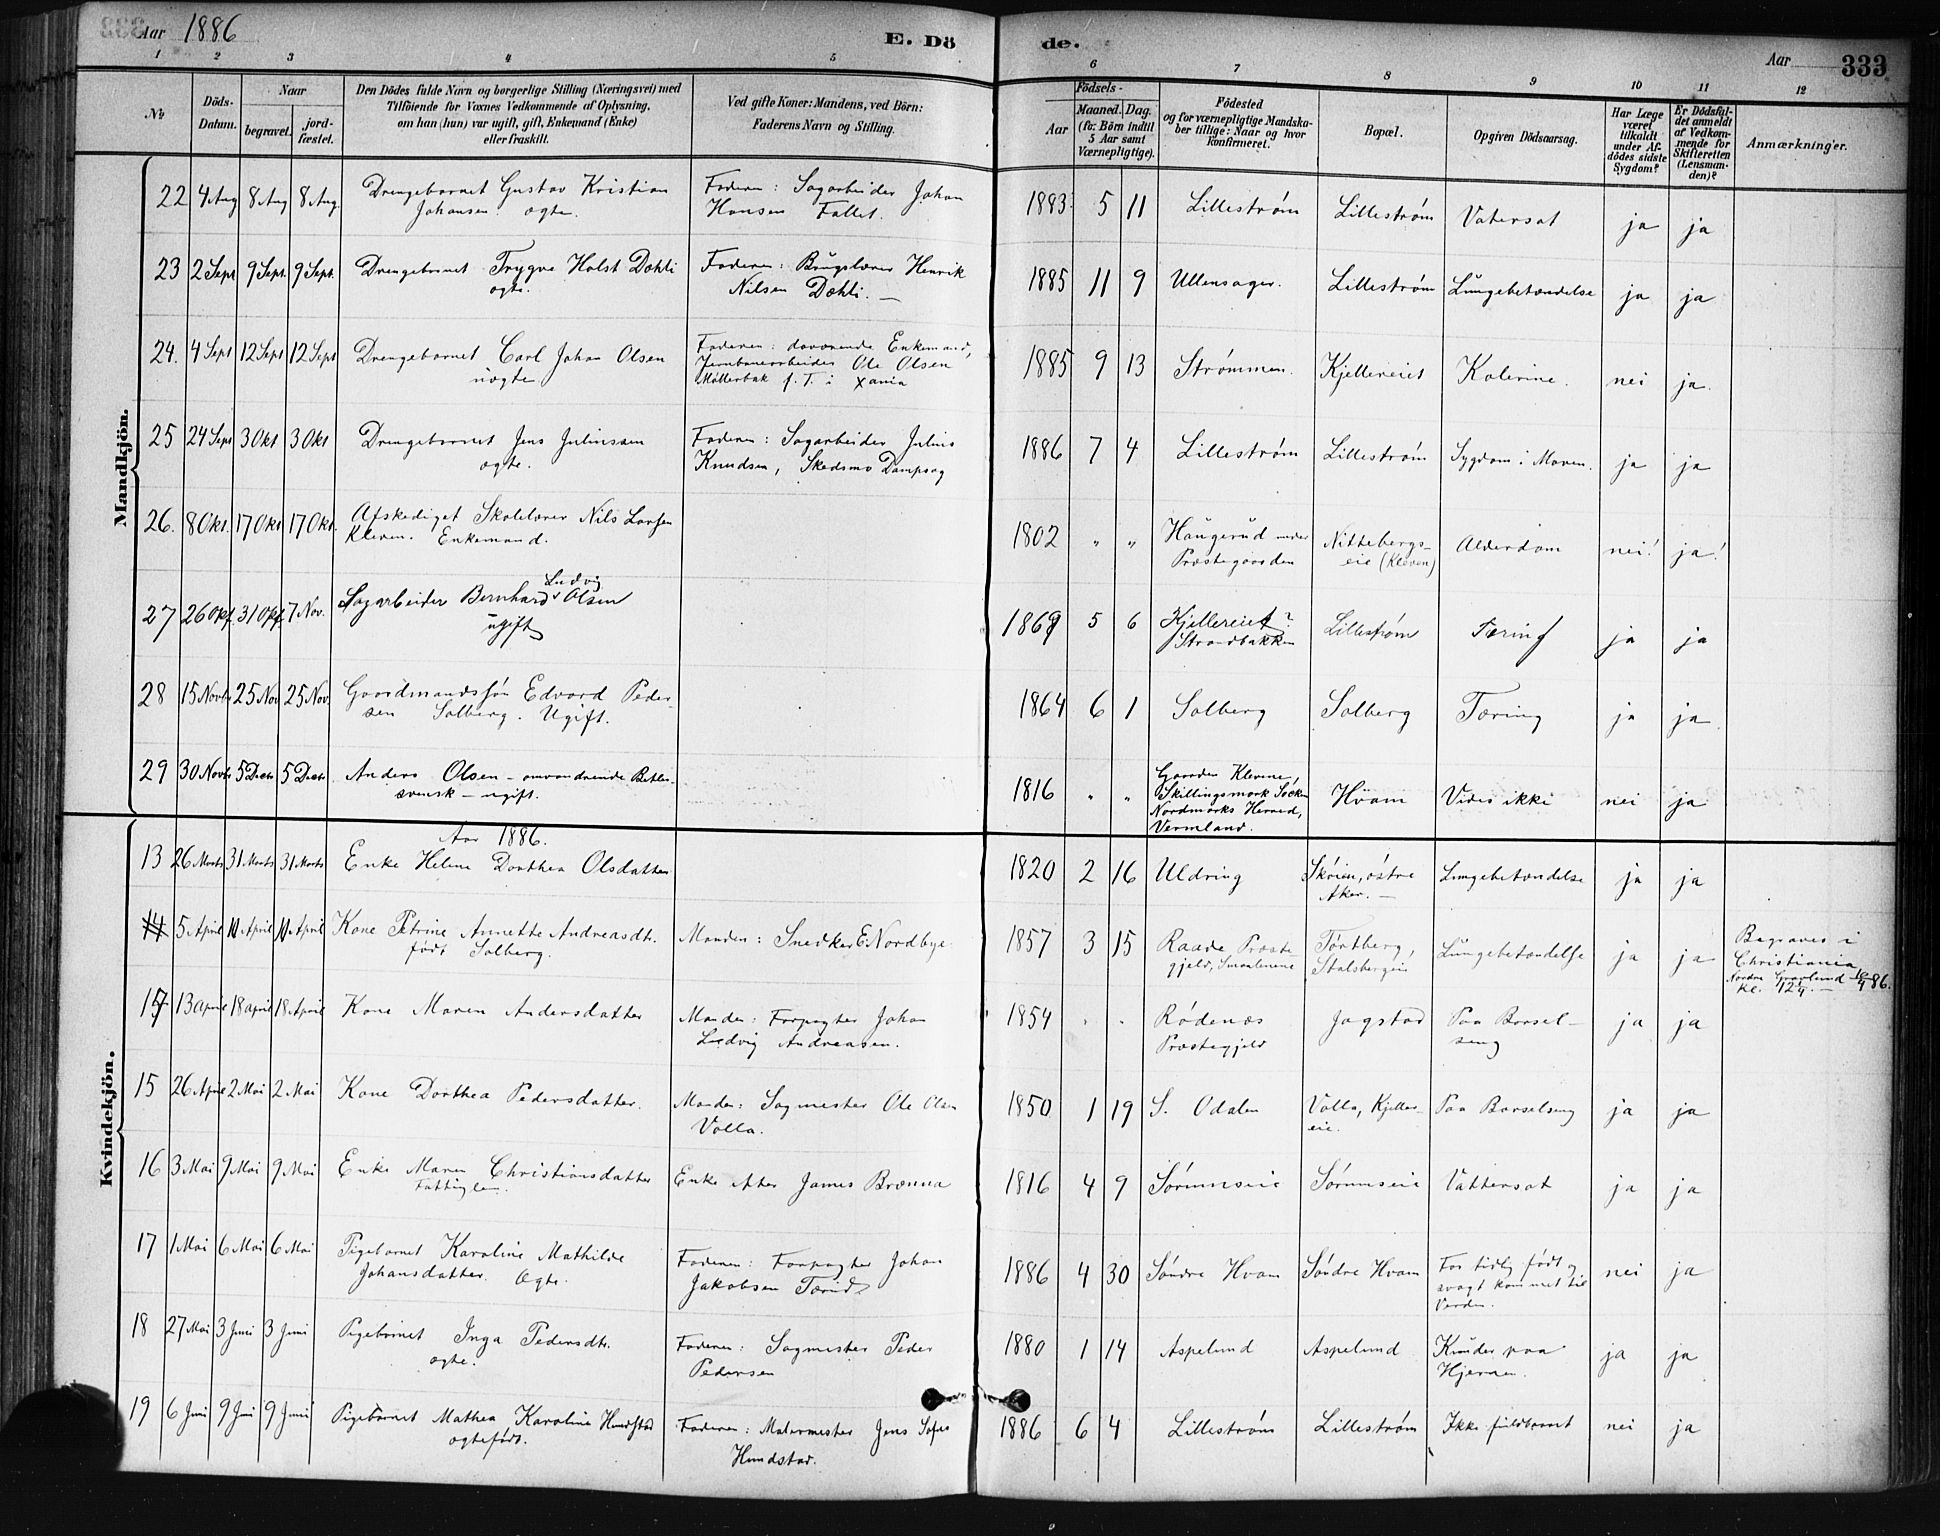 Aar 1886
E. Dö
de.
Aar
333
1 2 3 4 5 6 7 8 9 10 11 12
No
Döds-
Datum.
Naar
begravet.
jord-
fæstet.
Den Dödes fulde Navn og borgerlige Stilling (Næringsvei) med
Tilföiende for Voxnes Vedkommende af Oplysning,
om han (hun) var ugift, gift, Enkemand (Enke)
eller fraskilt.
Ved gifte Koner: Mandens, ved Börn:
Faderens Navn og Stilling.
Födsels-
Aar
Maaned.
Dag.
(for Börn indtil
5 Aar samt
Værnepligtige).
Födested
og for værnepligtige Mandska-
ber tillige: Naar og hvor
konfirmeret.
Bopæl.
Opgiven Dödsaarsag.
Har Læge
været
tilkaldt
under Af-
dödes sidste
Sygdom?
Er Dödsfal-
det anmeldt
af Vedkom-
mende for
Skifteretten
(Lensman-
den)?
Anmærkninger.
Mandkjön.
22 4 Aug 8 Aug 8 Aug. Drengebarnet Gustav Kristian Faderen: Sagarbeider Johan 1883 5 11 Lillestrøm Lillestrøm Vatersot ja ja
Johansen. ægte. Hansen Fallet.
23 2 Sept 9 Sept. 9 Sept. Drengebarnet Trygve Holst Dæhli Faderen: Brugslærer Henrik 1885 11 9 Ullensager. Lillestrøm Lungebetændelse ja ja
ægte. Nilsen Dæhli. —
24. 4 Sept 12 Sept 12 Sept Drengebarnet Carl Johan Olsen Faderen: daværende Enkemand, 1885 9 13 Strømmen. Kjellereiet Kolerine. nei ja.
uægte Jernbanearbeider Ole Olsen
Møllerbak f. T. i Xania
25 24 Sept 3 Okt 3 Okt Drengebarnet Jens Juliussen Faderen: Sagarbeider Julius 1886 7 4 Lillestrøm Lillestrøm Sygdom i Maven. ja ja
ægte. Knudsen, Skedsmo Dampsag
26. 8 Okt. 17 Okt 17 Okt. Afskediget Skolelærer Nils Larsen 1802 " " Haugerud under Nittebergs- Alderdom nei! ja!
Kleven. Enkemand. Præstegaarden eie (Kleven)
27 26 Okt. 31 Okt 7 Nov. Sagarbeider Bernhard Ludvig Olsen 1869 5 6 Kjellereiet? Lillestrøm Tæring ja ja
ugift Strandbakken
28 15 Novbr 25 Nov 25 Nov. Gaardmandssøn Edvard Peder- 1864 6 1 Solberg Solberg Tæring ja ja
sen Solberg. Ugift.
29 30 Novbr 5 Decbr 5 Decbr Anders Olsen – omvandrende Betler- 1816 " " Gaarden Klevene, Hvam Vides ikke nei ja
svensk – ugift. Skillingsmark Socken
Nordmarks Herred,
Vermland.
Kvindekjön.
Aar 1886.
13 26 Marts 31 Marts 31 Marts Enke Helene Dorthea Olsdatter 1820 2 16 Uldring Skøien, østre Lungebetændelse ja ja
Aker. —
14 5 April 11 April 11 April Kone Petrine Annette Andreasdtr. Manden: Snedker E Nordbye 1857 3 15 Raade Præste- Tortberg, Lungebetændelse ja ja Begraves i
født Solberg. gjeld, Smaalenene Stalsbergeie Christiania
Nordre Gravlund 10/4 86.
kl. 12¼. —
13 april 18 april 18 April Kone Maren Andersdatter Manden: Forpagter Johan 1854 " " Rødenæs Jogstad Paa Barsel- ja ja
Ludvig Andreasen. Præstegjeld seng
15 26 April 2 Mai 2 Mai Kone Dorthea Pedersdatter. Manden: Sagmester Ole Olsen 1850 1 19 S. Odalen Volla, Kjeller- Paa Barselseng ja ja
Volla. eie.
16 3 Mai 9 Mai 9 Mai Enke Maren Christiansdatter Enke efter James Brænna 1816 4 9 Sørumseie Sørumseie Vattersot ja ja
Fattiglem.
17 1 Mai 6 Mai 6 Mai Pigebarnet Karoline Mathilde Faderen: Forpagter Johan 1886 4 30 Søndre Hvam Søndre Hvam For tidlig født og nei ja
Johansdatter. Ægte. Jakobsen svagt kommet til
Verden.
18 27 Mai 3 Juni 3 Juni Pigebarnet Inga Pedersdtr. Faderen: Sagmester Peder 1880 1 14 Aspelund Aspelund Knuder paa ja ja
ægte. Pedersen Hjernen.
19 6 Juni 9 Juni 9 Juni Pigebarnet Mathea Karoline Hundstad Faderen: Malermester Jens Sofus 1886 6 4 Lillestrøm Lillestrøm Ikke fuldbaaret nei ja
ægtefødt. Hundstad.